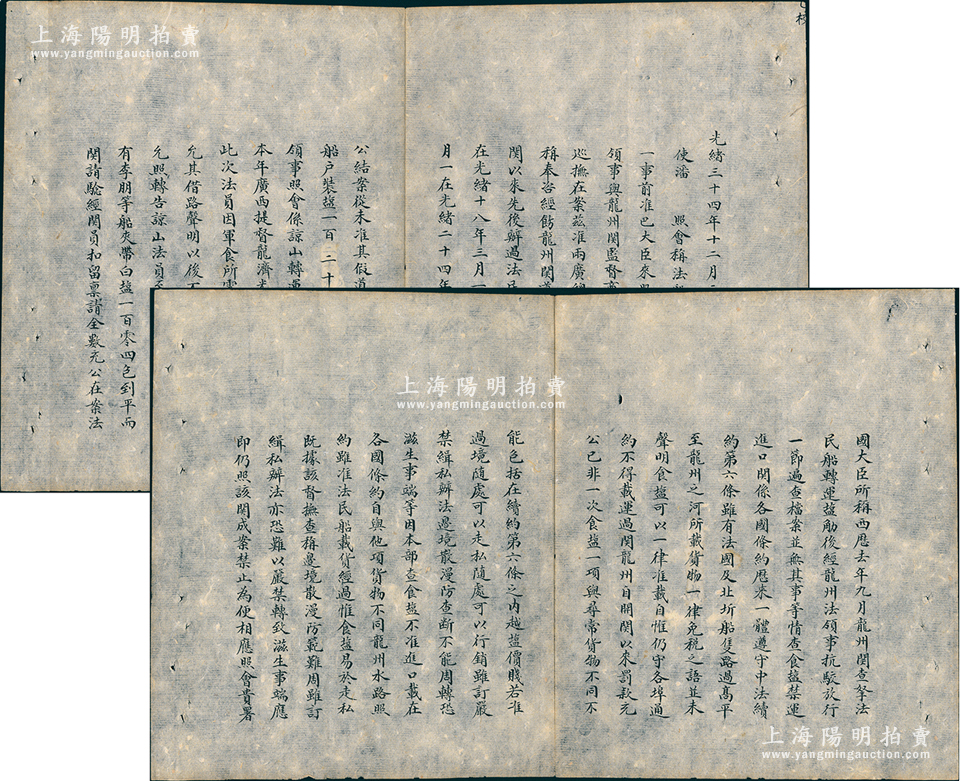 上海陽明拍賣
www.yangmingauction.com
光緒三十四年十二月
使潘 照會稱法
一事前准巴大臣來
領事與龍州關監督商
巡撫在案茲准兩廣總
稱奉咨經飭龍州關
關以來先後辦過法民
在光緒十八年三月一
月一在光緒二十四年
公結案從未准其假道
船戶裝鹽一百二十
領事照會係諒山轉運
本年廣西提督龍濟光
此次法員因軍食所需
允其借路聲明以後不
允照轉告諒山法員
有李朋等船夾帶白鹽一百零四包到平而
關請驗經關員扣留稟請全數充公在案法
國大臣所稱西歷去年九月龍州關查拏法
民船轉運鹽觔後經龍州法領事抗駁放行
一節遍查檔案並無其事等情查食鹽禁運
進口關係各國條約歷來一體遵守中法續
約第六條雖有法國及北圻船隻路過高平
至龍州之河所載貨物一律免稅之語並未
聲明食鹽可以一律准載自惟仍守各埠通
約不得載運過關龍州自開關以來罰款充
公已非一次食鹽一項與尋常貨物不同不
能包括在續約第六條之內越鹽價賤若准
過境隨處可以走私隨處可以行銷雖訂嚴
禁緝私辦法邊境散漫防查斷不能周轉恐
滋生事端等因本部查食鹽不准進口載在
各國條約自與他項貨物不同龍州水路照
約雖准法民船載貨經過惟食鹽易於走私
既據該督撫查稱邊境散漫防範難周雖訂
緝私辦法亦恐難以嚴禁轉致滋生事端應
即仍照該關成案禁止為便相應照會貴署
上海陽明拍賣
www.yangmingauction.com
上海陽明拍賣
www.yangmingauction.com